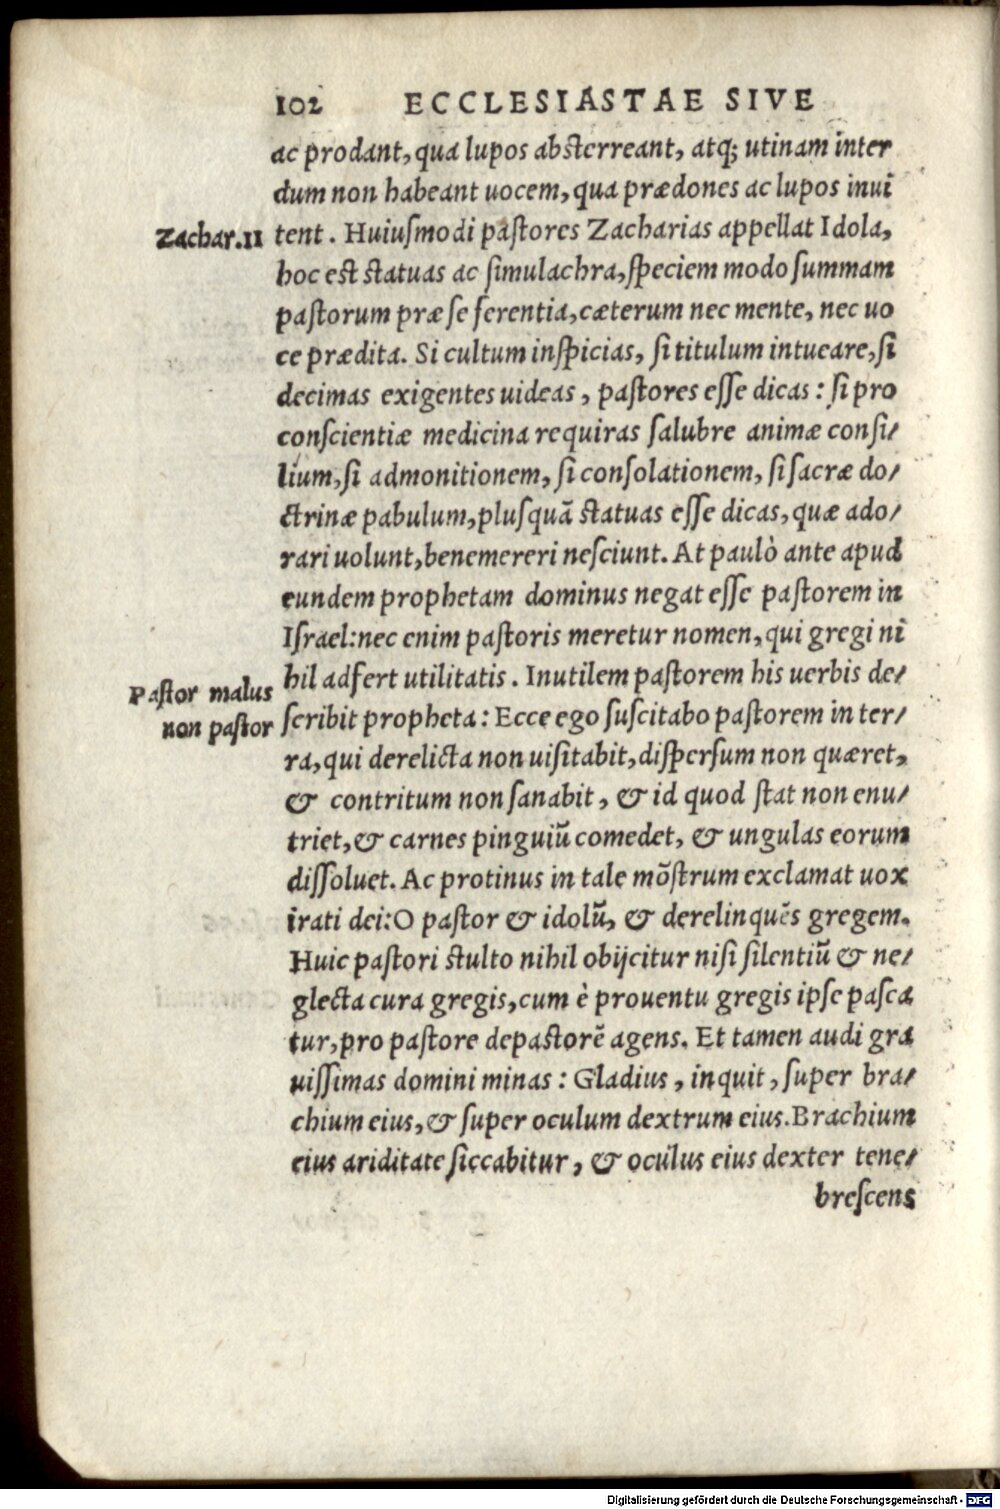 102 ECCLESIASTAE SIVE
ac prodant, qua lupos absterreant, atq; utinam inter
dum non habeant uocem, qua prædones ac lupos inui
Zachar.11
tent. Huiusmodi pastores Zacharias appellat Idola,
hoc est statuas ac simulachra, speciem modo summam
pastorum præ se ferentia, cæterum nec mente, nec uo
ce prædita. Si cultum inspicias, si titulum intueare, si
decimas exigentes uideas, pastores esse dicas: si pro
conscientiæ medicina requiras salubre animæ consi/
lium, si admonitionem, si consolationem, si sacræ do/
ctrinæ pabulum, plusquã statuas esse dicas, quæ ado/
rari uolunt, benemereri nesciunt. At paulò ante apud
eundem prophetam dominus negat esse pastorem in
Israel: nec enim pastoris meretur nomen, qui gregi ni
hil adfert utilitatis. Inutilem pastorem his uerbis de/
Pastor malus
non pastor
scribit propheta: Ecce ego suscitabo pastorem in ter/
ra, qui derelicta non uisitabit, dispersum non quæret,
& contritum non sanabit, & id quod stat non enu/
triet, & carnes pinguiũ comedet, & ungulas eorum
dissoluet. Ac protinus in tale mõstrum exclamat uox
irati dei: O pastor & idolũ, & derelinquẽs gregem.
Huic pastori stulto nihil obijcitur nisi silentiũ & ne/
glecta cura gregis, cum è prouentu gregis ipse pasca
tur, pro pastore depastorẽ agens. Et tamen audi gra
uissimas domini minas: Gladius, inquit, super bra/
chium eius, & super oculum dextrum eius. Brachium
eius ariditate siccabitur, & oculus eius dexter tene/
brescens
Digitalisierung gefördert durch die Deutsche Forschungsgemeinschaft - DFG